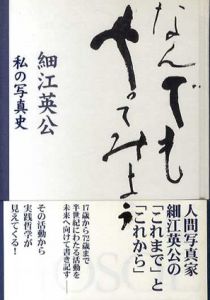 なんでも
やってみよう
細江英公
私の写真史
人間写真家
細江英公の
「これまで」と
「これから」
17歳から72歳まで
半世紀にわたる活動を
未来へ向けて書き記す——
その活動から
実践哲学が
見えてくる！